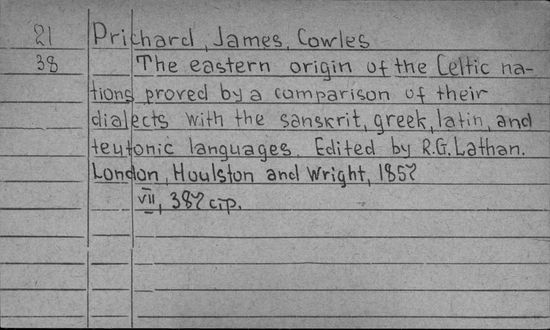 21 Prichard, James, Cowles
38 The eastern origin of the Celtic na-
tions proved by a comparison of their
dialects with the sanskrit, greek, latin, and
teutonic languages. Edited by R.G. Lathan.
London, Houlston and Wright, 1857
VII, 387 стр.